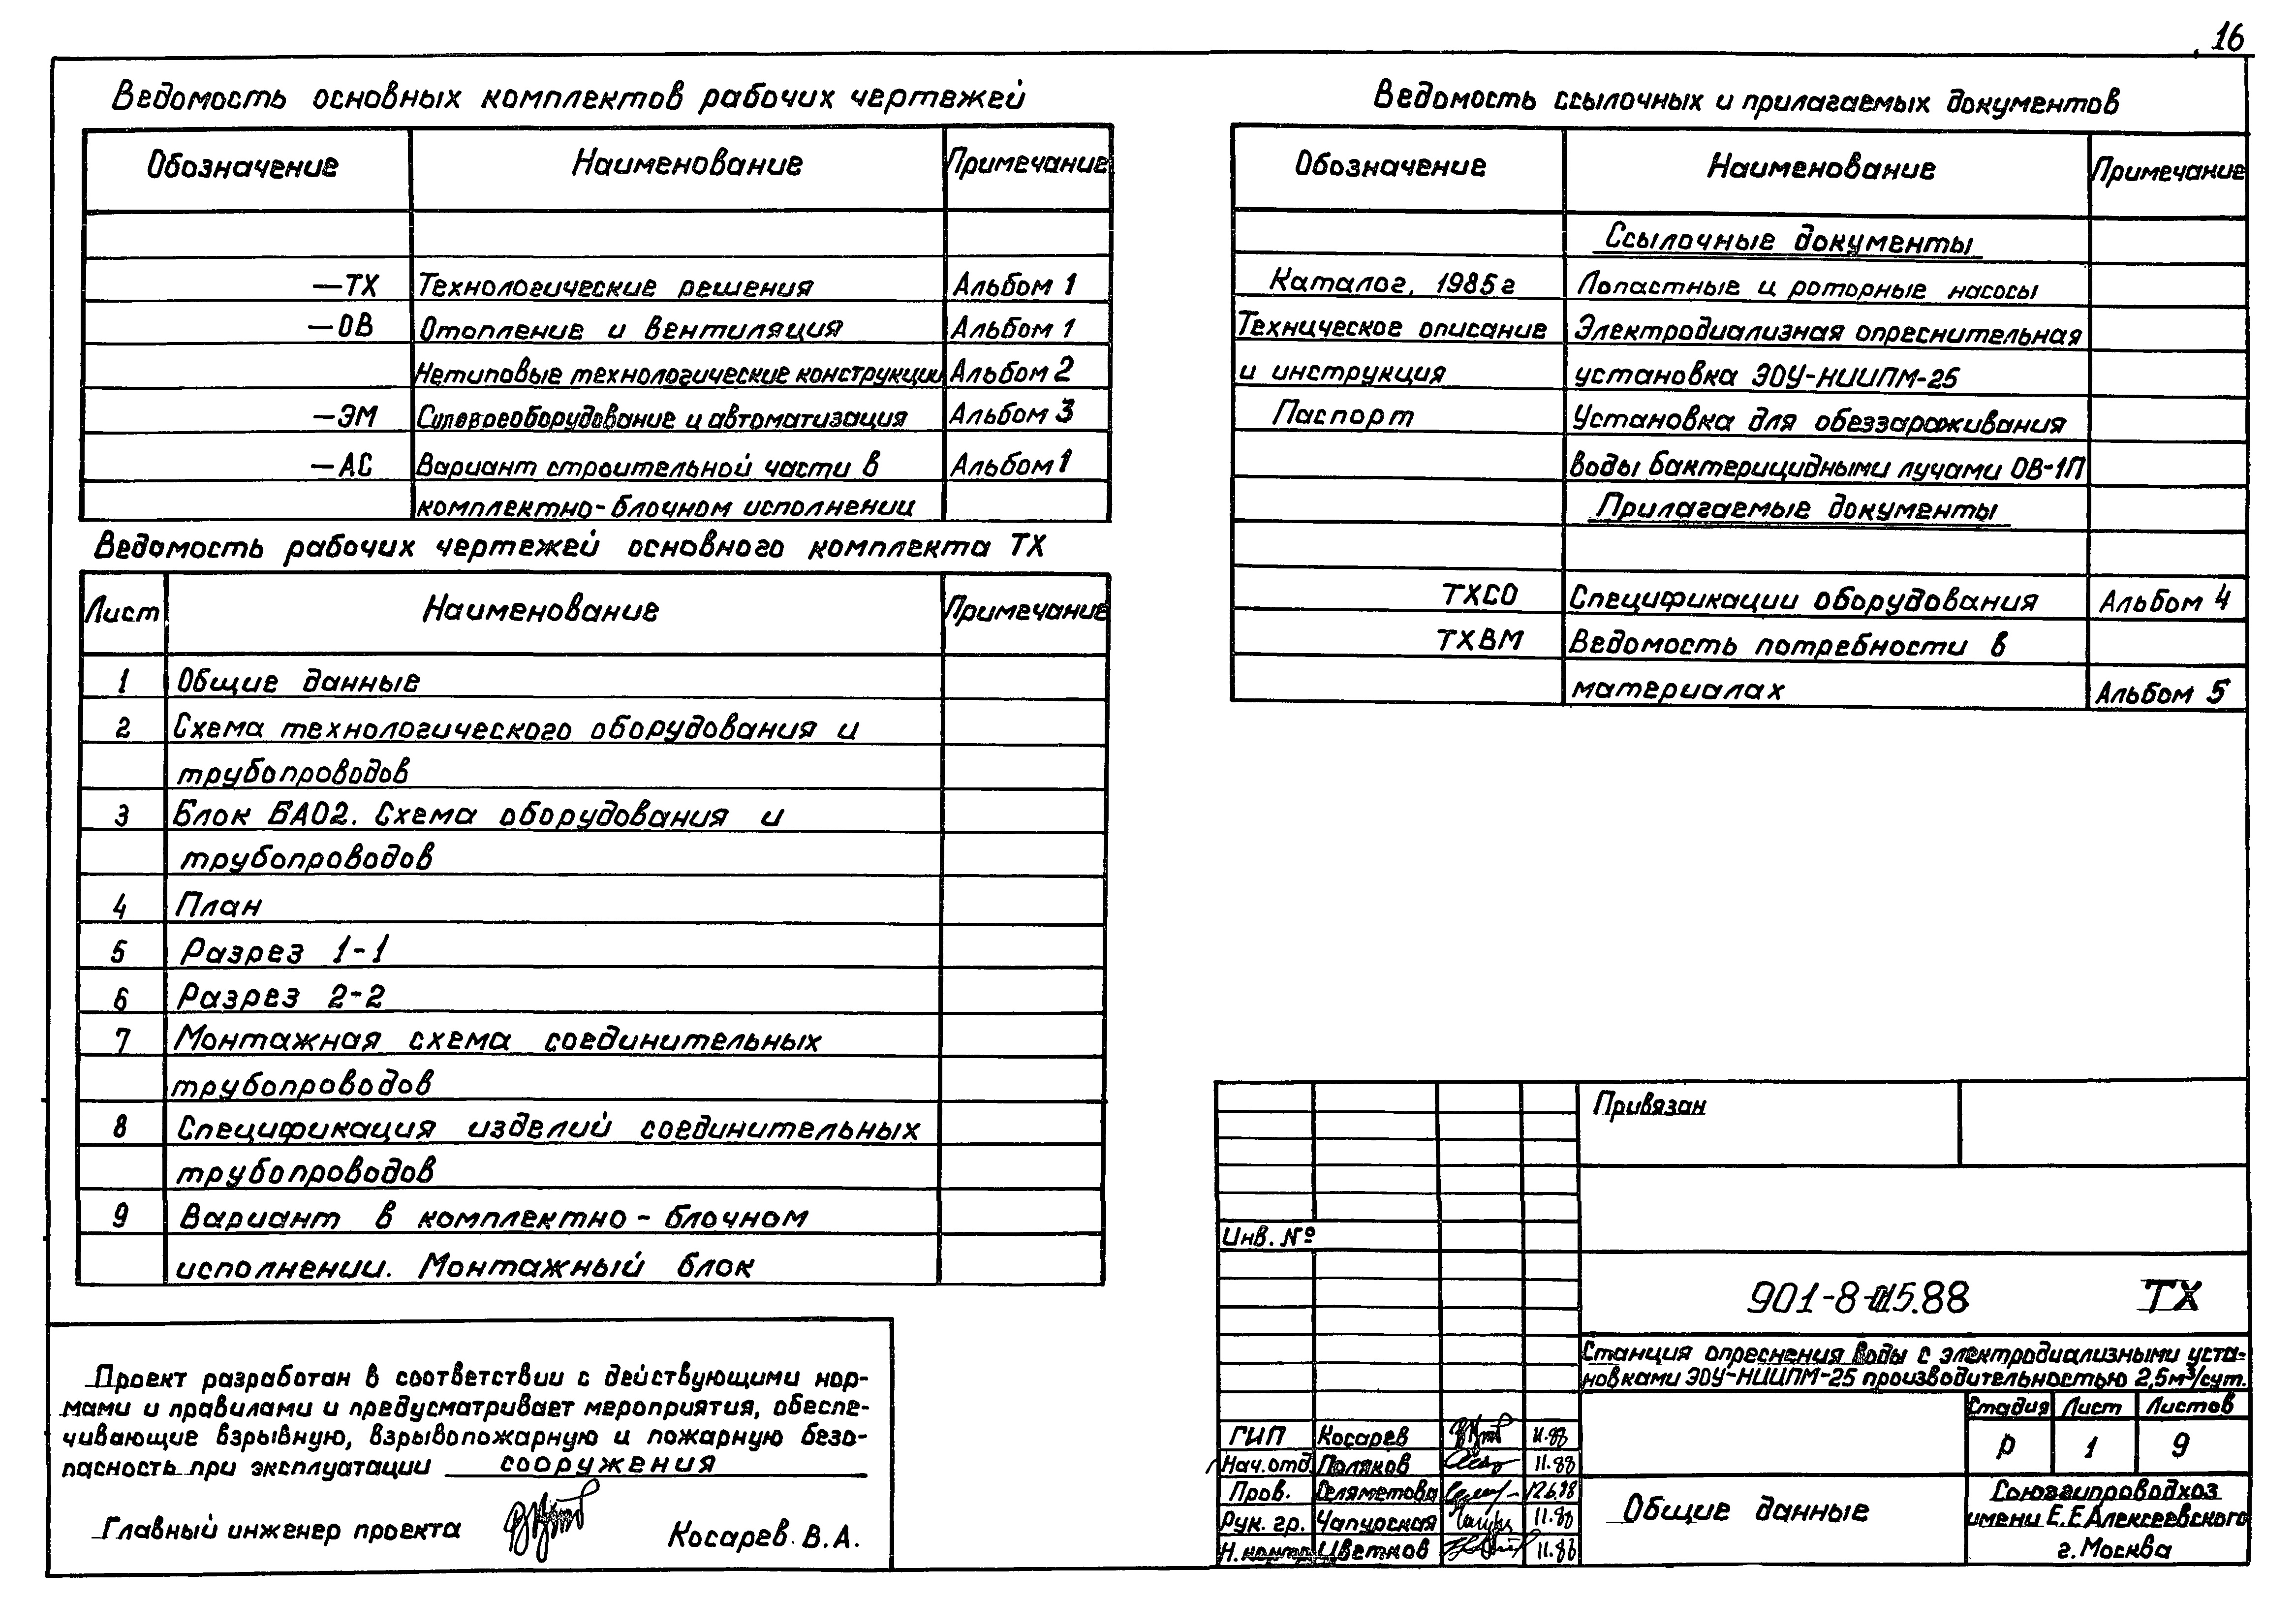 16
Ведомость основных комплектов рабочих чертежей
Обозначение Наименование Примечание
—ТХ Технологические решения Альбом 1
—ОВ Отопление и вентиляция Альбом 1
Нетиповые технологические конструкции Альбом 2
—ЭМ Силовое оборудование и автоматизация Альбом 3
—АС Вариант строительной части в Альбом 1
комплектно-блочном исполнении
Ведомость рабочих чертежей основного комплекта ТХ
Лист Наименование Примечание
1 Общие данные
2 Схема технологического оборудования и
трубопроводов
3 Блок БА02. Схема оборудования и
трубопроводов
4 План
5 Разрез 1-1
6 Разрез 2-2
7 Монтажная схема соединительных
трубопроводов
8 Спецификация изделий соединительных
трубопроводов
9 Вариант в комплектно-блочном
исполнении. Монтажный блок
Проект разработан в соответствии с действующими нор-
мами и правилами и предусматривает мероприятия, обеспе-
чивающие взрывную, взрывопожарную и пожарную безо-
пасность при эксплуатации сооружения
Главный инженер проекта Косарев В.А.
Ведомость ссылочных и прилагаемых документов
Обозначение Наименование Примечание
Ссылочные документы
Каталог, 1985г Лопастные и роторные насосы
Техническое описание Электродиализная опреснительная
и инструкция установка ЭОУ-НИИПМ-25
Паспорт Установка для обеззараживания
воды бактерицидными лучами ОВ-1П
Прилагаемые документы
ТХСО Спецификации оборудования Альбом 4
ТХВМ Ведомость потребности в
материалах Альбом 5
Привязан
Инв. №
901-8-15.88 ТХ
Станция опреснения воды с электродиализными уста-
новками ЭОУ-НИИПМ-25 производительностью 2,5м³/сут.
Стадия Лист Листов
Р 1 9
ГИП Косарев 11.88
Нач.отд. Поляков 11.88
Пров. Селяметова
Рук. гр. Чапурская 11.88
Н. контр. Цветков 11.88
Общие данные
Союзгипроводхоз
имени Е.Е.Алексеевского
г. Москва